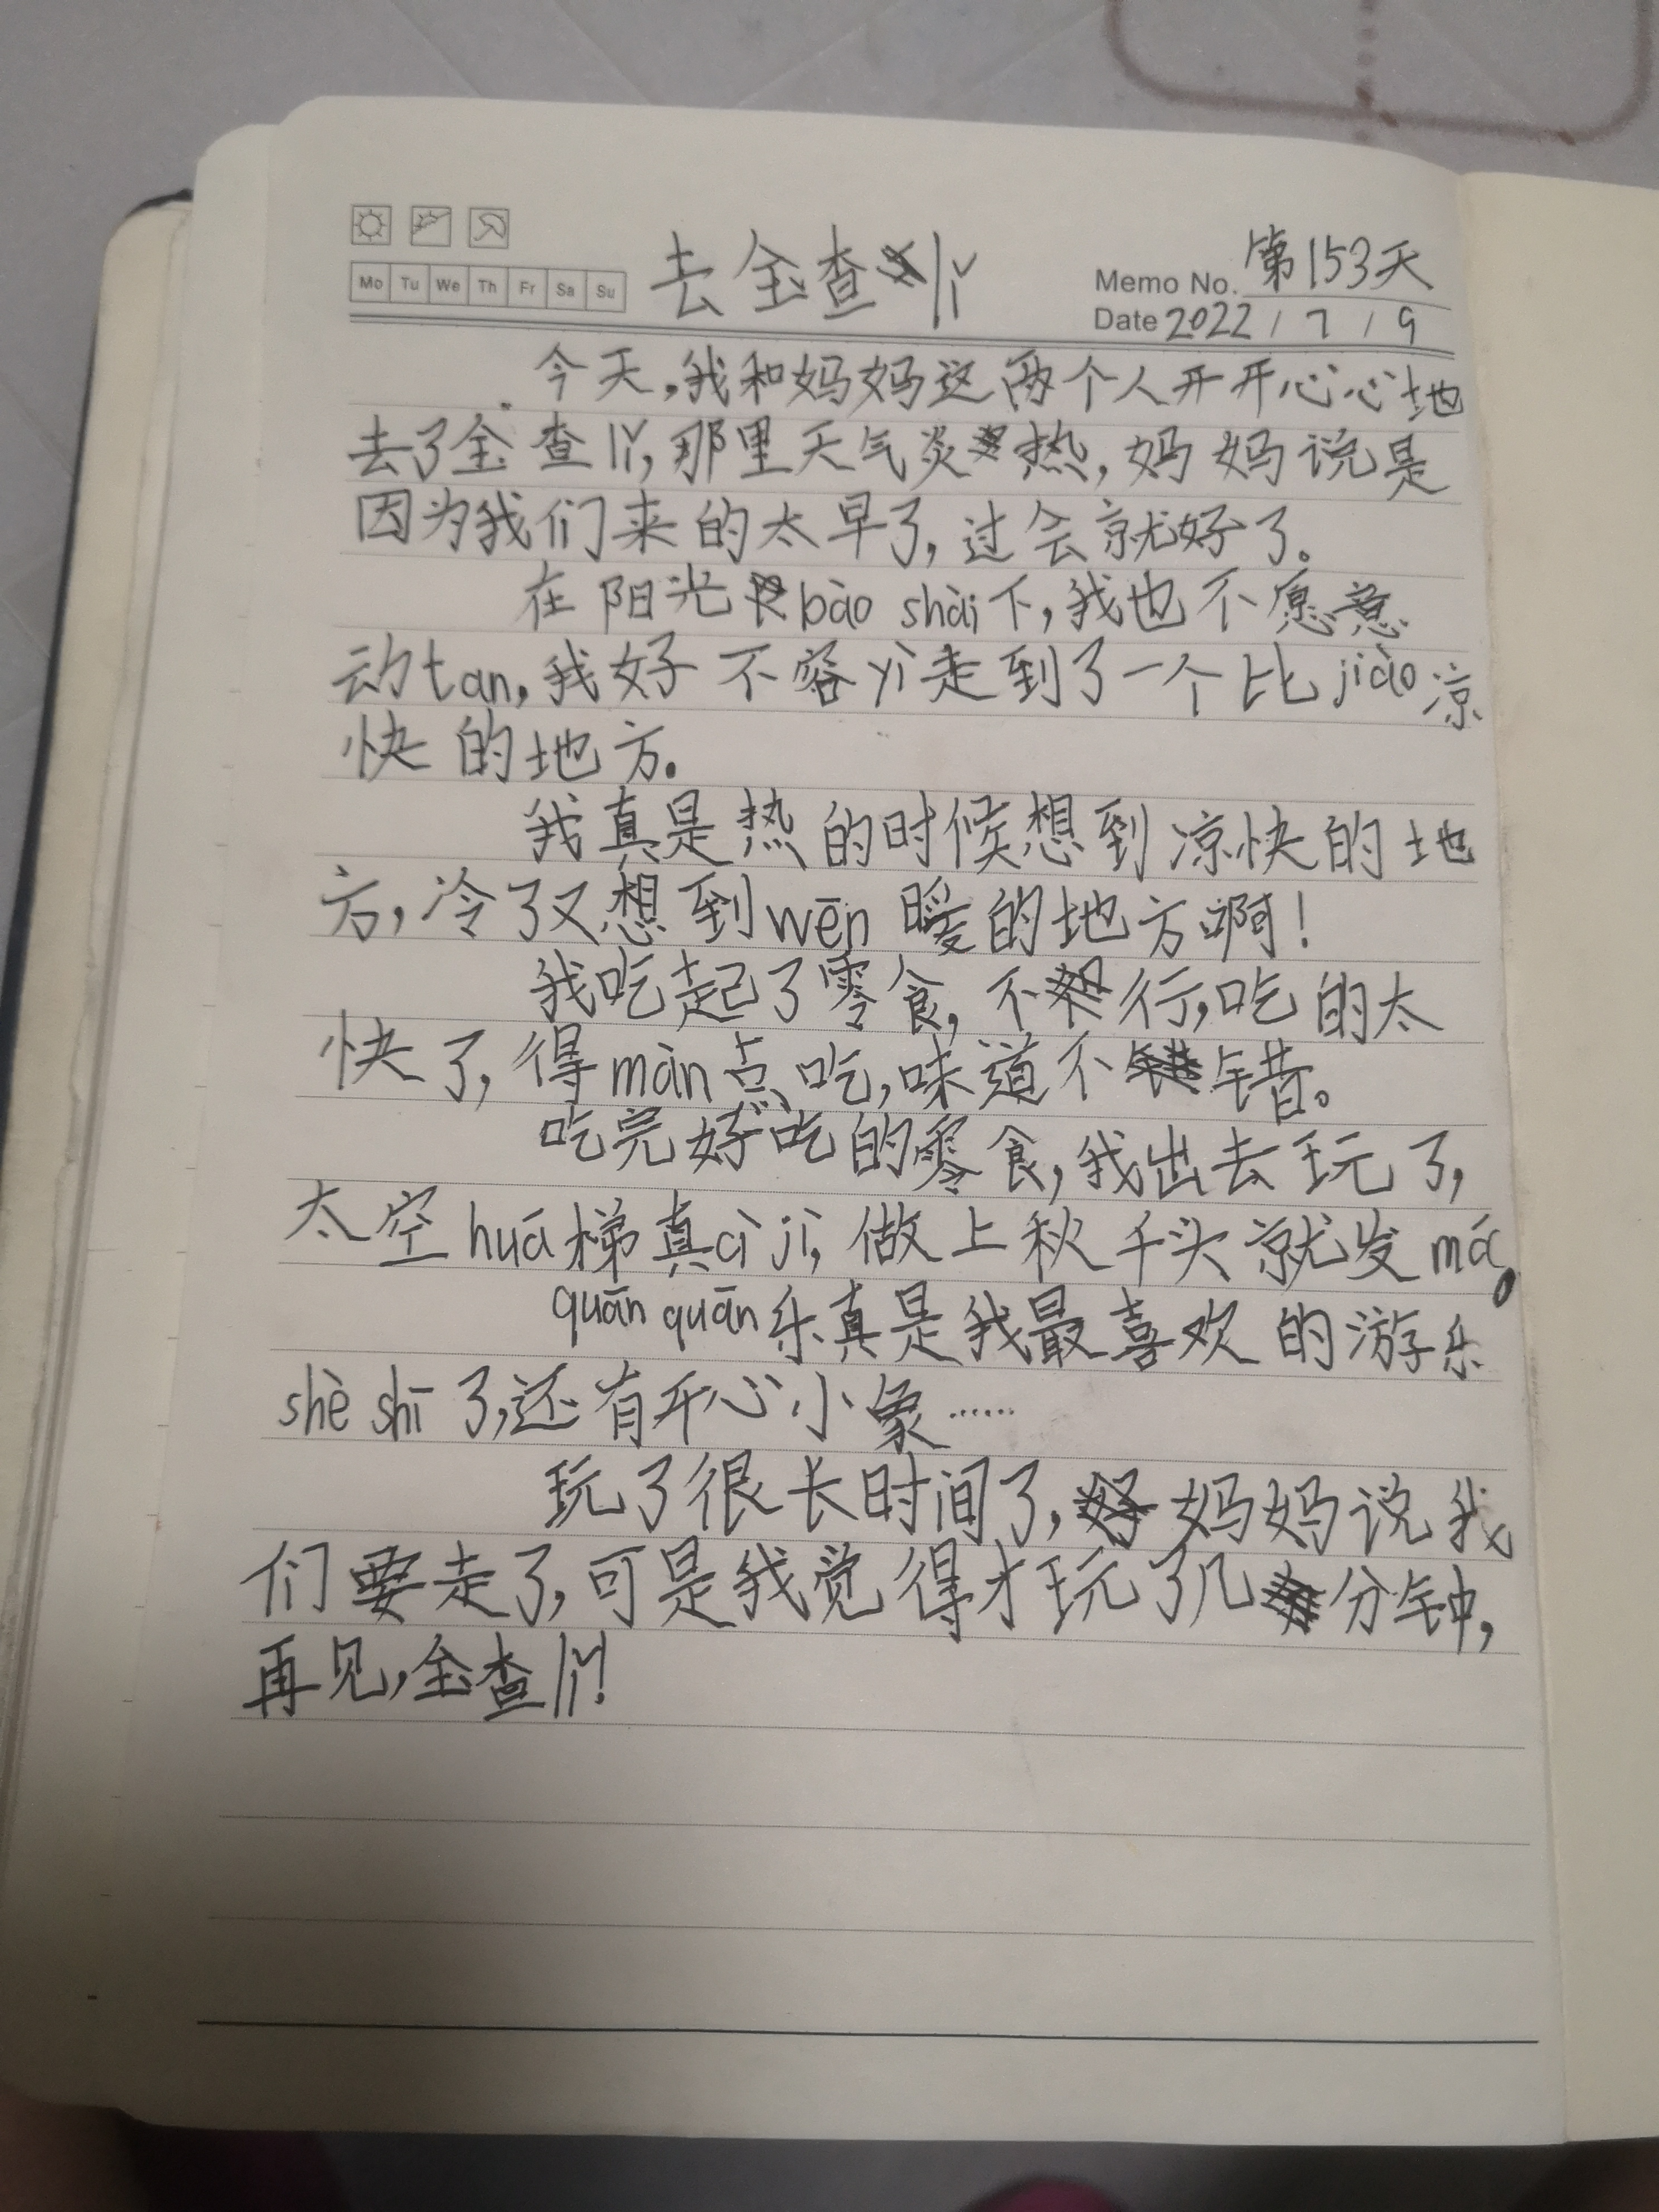 Mo Tu We Th Fr Sa Su
去金查lǐ
Memo No. 第153天
Date 2022/7/9
今天,我和妈妈这两个人开开心心地
去了金查lǐ,那里天气炎热,妈妈说是
因为我们来的太早了,过会就好了。
在阳光bào shài下,我也不愿意
动tan,我好不容yì走到了一个比jiào凉
快的地方.
我真是热的时候想到凉快的地
方,冷了又想到wēn暖的地方啊!
我吃起了零食,不行,吃的太
快了,得màn点吃,味道不错。
吃完好吃的零食,我出去玩了,
太空huá梯真cì jī,做上秋千头就发má。
quān quān乐真是我最喜欢的游乐
shè shī了,还有开心小象……
玩了很长时间了,妈妈说我
们要走了,可是我觉得才玩了几分钟,
再见,金查lǐ!